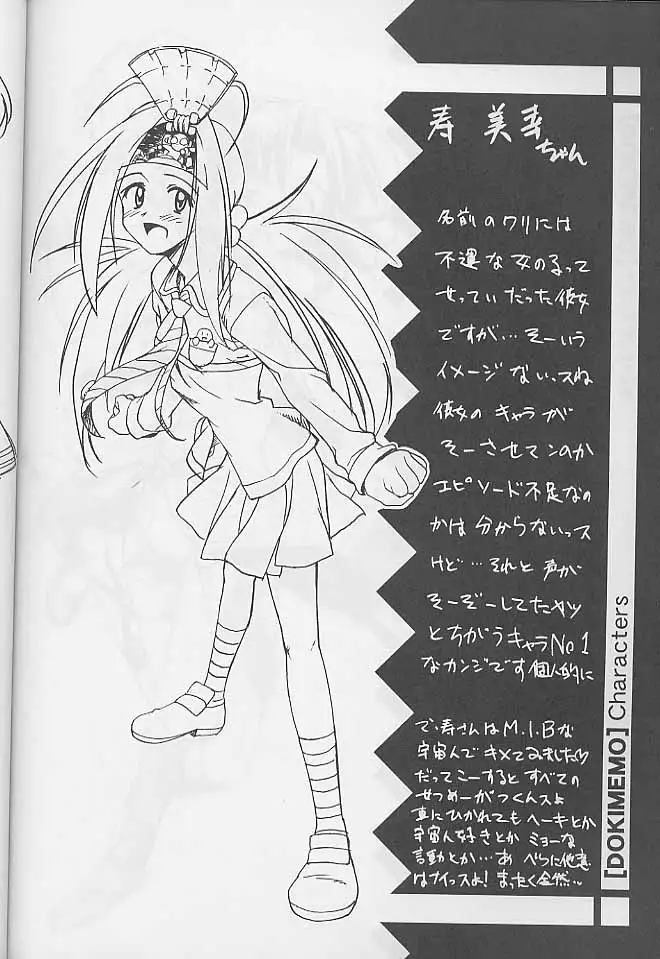 寿 美幸
ちゃん
名前のワリには
不運な女のコって
せっていだった彼女
ですが…そーいう
イメージないっスね
彼女のキャラが
そーさせてンのか
エピソード不足なの
かは分からないっス
けど…それと声が
そーぞーしてたヤツ
とちがうキャラNo1
なカンジです個人的に
で、寿さんはM.I.Bな
宇宙人でキメてみましたッ
だってこーするとすべての
せつめーがつくんスよ
車にひかれてもヘーキとか
宇宙人好きとかミョーな
言動とか…あ べつに他意
はナイっスよ!まったく全然…
[DOKIMEMO] Characters